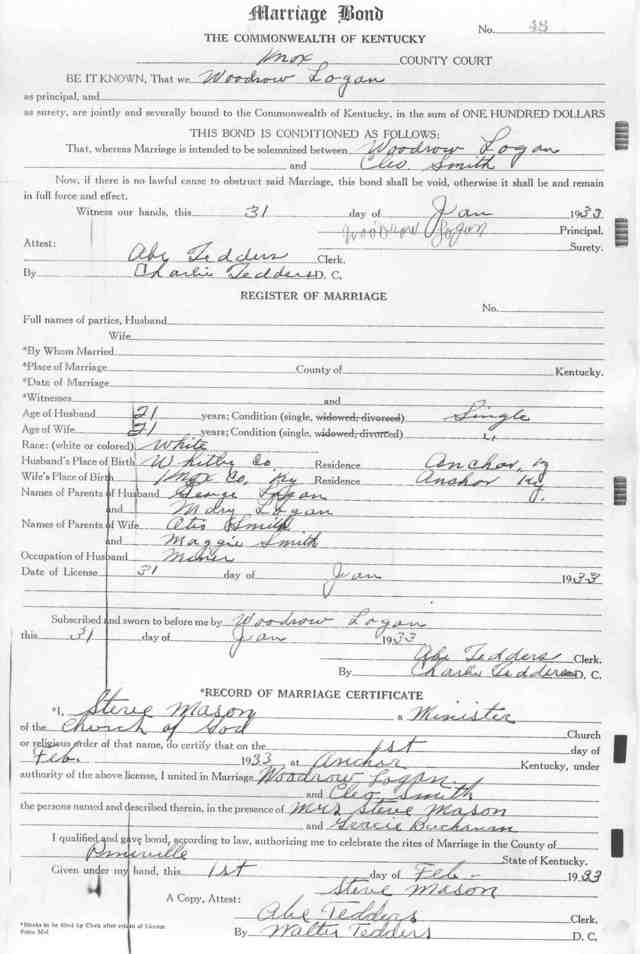 Marriage Bond
No. 48
THE COMMONWEALTH OF KENTUCKY
Knox COUNTY COURT
BE IT KNOWN, That we Woodrow Logan
as principal, and
as surety, are jointly and severally bound to the Commonwealth of Kentucky, in the sum of ONE HUNDRED DOLLARS
THIS BOND IS CONDITIONED AS FOLLOWS:
That, whereas Marriage is intended to be solemnized between Woodrow Logan
and Cleo Smith
Now, if there is no lawful cause to obstruct said Marriage, this bond shall be void, otherwise it shall be and remain
in full force and effect.
Witness our hands, this 31 day of Jan 1933
Woodrow Logan Principal.
Attest: Surety.
Abe Tedders Clerk.
By Charlie Tedders D. C.
REGISTER OF MARRIAGE
No.
Full names of parties, Husband
Wife
*By Whom Married
*Place of Marriage County of Kentucky.
*Date of Marriage
*Witnesses and
Age of Husband 21 years; Condition (single, widowed, divorced) Single
Age of Wife 21 years; Condition (single, widowed, divorced) "
Race: (white or colored) White
Husband's Place of Birth Whitley Co Residence Anchor, Ky
Wife's Place of Birth Knox Co, Ky Residence Anchor Ky.
Names of Parents of Husband George Logan
and Mary Logan
Names of Parents of Wife Otis Smith
and Maggie Smith
Occupation of Husband Miner
Date of License 31 day of Jan 1933
Subscribed and sworn to before me by Woodrow Logan
this 31 day of Jan 1933
Abe Tedders Clerk.
By Charlie Tedders D. C.
*RECORD OF MARRIAGE CERTIFICATE
*I, Steve Mason a Minister
of the Church of God Church
or religious order of that name, do certify that on the 1st day of
Feb. 1933 at Anchor Kentucky, under
authority of the above license, I united in Marriage Woodrow Logan
and Cleo Smith
the persons named and described therein, in the presence of Mrs Steve Mason
and Gracie Buchanan
I qualified and gave bond, according to law, authorizing me to celebrate the rites of Marriage in the County of
Pineville State of Kentucky.
Given under my hand, this 1st day of Feb- 1933
Steve Mason
A Copy, Attest:
Abe Tedders Clerk.
By Walter Tedders D. C.
*Blanks to be filled by Clerk after return of License